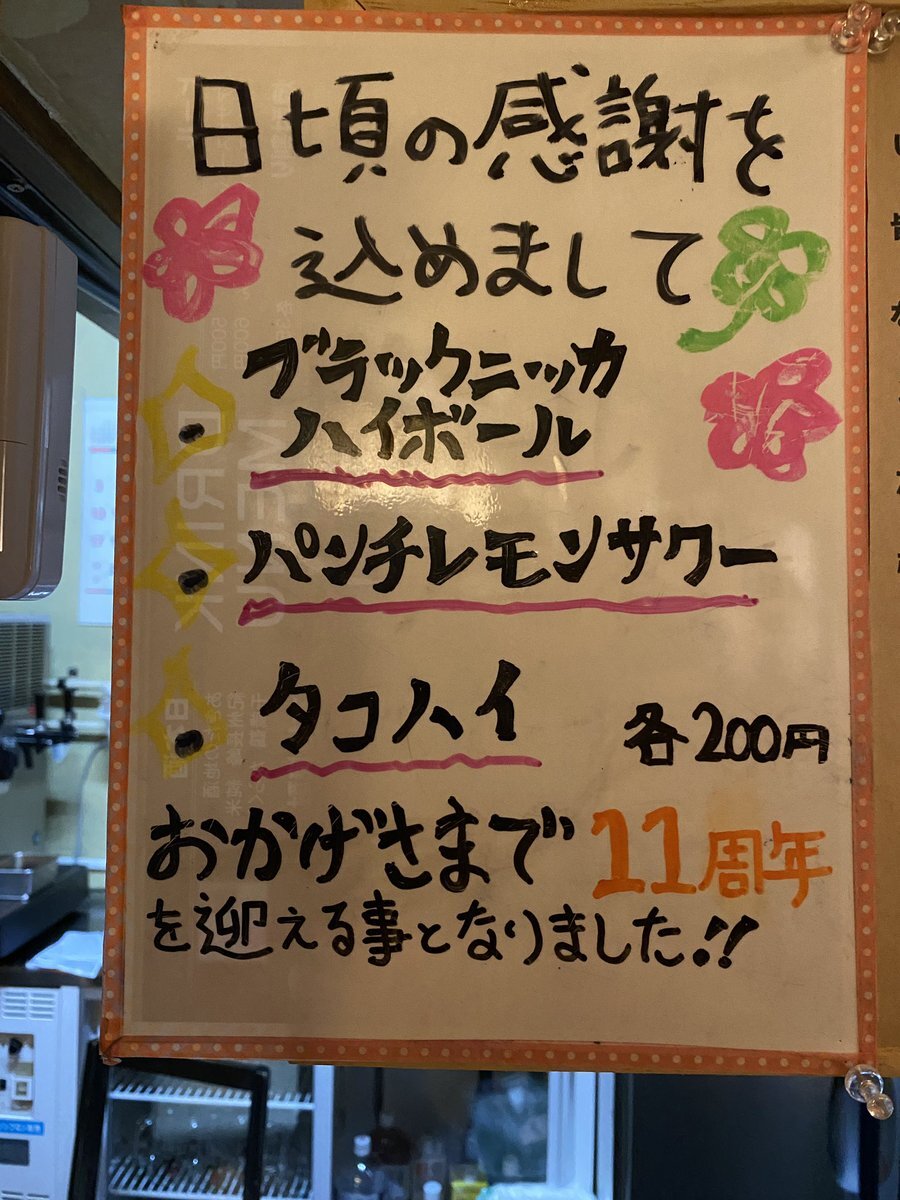 日頃の感謝を
込めまして
ブラックニッカ
ハイボール
パンチレモンサワー
タコハイ
各200円
おかげさまで11周年
を迎える事となりました!!